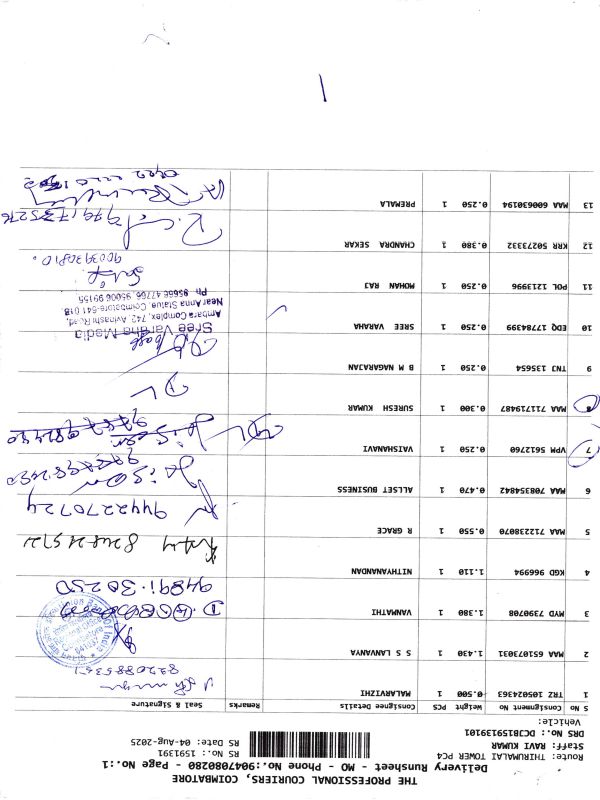 THE PROFESSIONAL COURIERS, COIMBATORE
Delivery Runsheet - MO - Phone No.:9047080280 - Page No.:1
Route: THIRUMALAI TOWER PC4
Staff: RAVI KUMAR
DRS No.: DCJB1591391391
Vehicle:
RS No.: 1591391
RS Date: 04-Aug-2025
S No Consignment No Weight PCS Consignee Details Remarks Seal & Signature
1 TRZ 105024363 0.500 1 MALARIZHI
8220885367
2 MAA 651073031 1.430 1 S S LANVANLA
3 MYD 7390708 1.380 1 VANMATHI
94891.30250
4 KGD 966994 1.110 1 NITHYANANDAN
5 MAA 712238070 0.550 1 R GRACE
9442270724
6 MAA 708354842 0.470 1 ALLSET BUSINESS
7 VPM 5612760 0.250 1 VAISHAVANI
DL
8 MAA 711719487 0.300 1 SURESH KUMAR
DL
9 TNJ 135654 0.250 1 B M NAGARAJAN
10 EDQ 17784399 0.250 1 SREE VARAHA
Sree Varaha Media
Ambara Complex, 742, Avinashi Road,
Near Anna Statue, Coimbatore-641 018.
Ph: 95666 47766, 95006 99155
11 POL 1213996 0.250 1 MOHAN RAJ
9003930810.
12 KRR 50273332 0.380 1 CHANDRA SEKAR
13 MAA 600630194 0.250 1 PREMALA